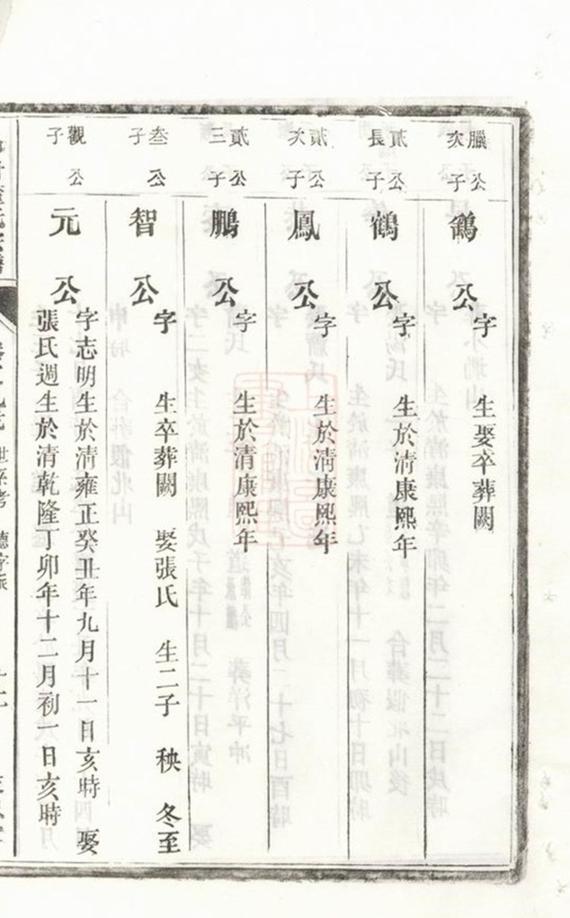 臘公次子
鵒公
字 生娶卒葬闕
貳公長子
鶴公
字 生於清康熙年
貳公次子
鳳公
字 生於清康熙年
貳公三子
鵬公
字 生於清康熙年
叁公子
智公
字 生卒葬闕 娶張氏 生二子 秧 冬至
觀公子
元公
字志明生於清雍正癸丑年九月十一日亥時 娶
張氏週生於清乾隆丁卯年十二月初一日亥時